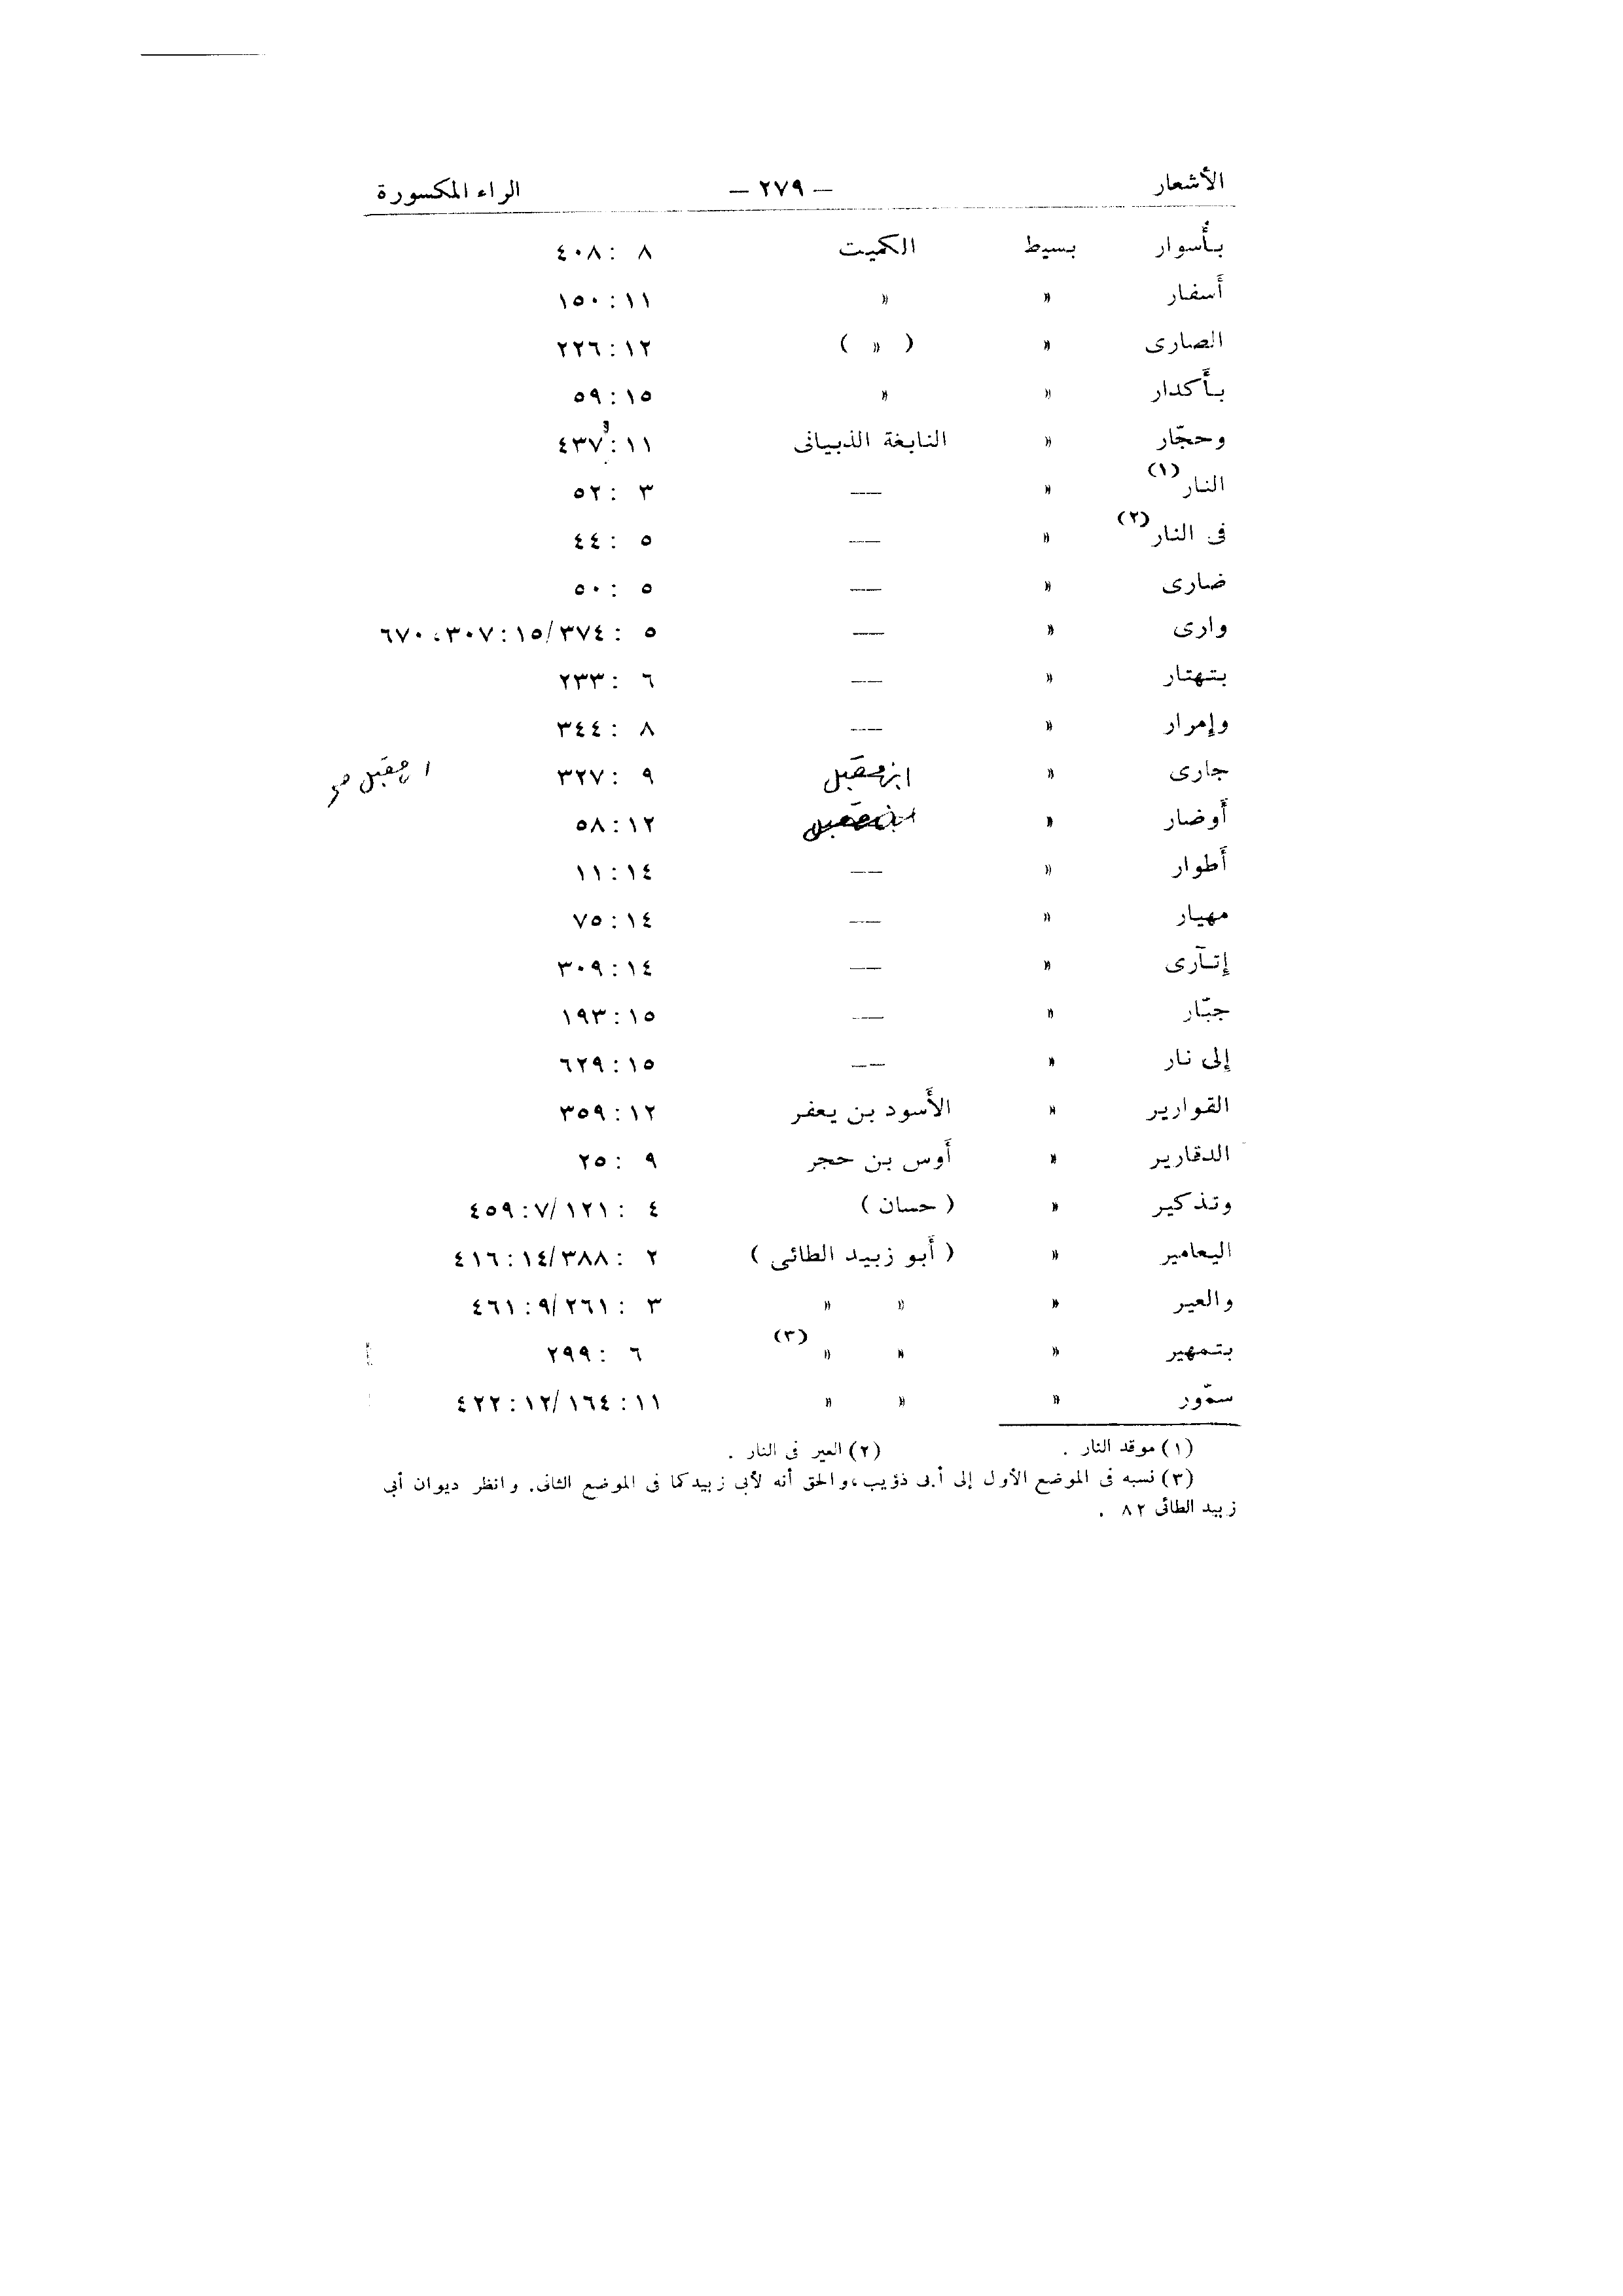 الأشعار — ٢٧٩ — الراء المكسورة
بأسوار بسيط الكميت ٨ : ٤٠٨
أسفار » » ١١ : ١٥٠
الصارى » ( » ) ١٢ : ٢٢٦
بأكدار » » ١٥ : ٥٩
وحجّار » النابغة الذبيانى ١١ : ٤٣٧
النار (١) » — ٣ : ٥٢
فى النار (٢) » — ٥ : ٤٤
ضارى » — ٥ : ٥٠
وارى » — ٥ : ٣٧٤/١٥ : ٣٠٧، ٦٧٠
بتهتار » — ٦ : ٢٣٣
وإمرار » — ٨ : ٣٤٤
جارى » ابن مقبل ٩ : ٣٢٧ ابن مقبل
أوضار » ابن مقبل ١٢ : ٥٨
أطوار » — ١٤ : ١١
مهيار » — ١٤ : ٧٥
إتآرى » — ١٤ : ٣٠٩
جبّار » — ١٥ : ١٩٣
إلى نار » — ١٥ : ٦٢٩
القوارير » الأسود بن يعفر ١٢ : ٣٥٩
الدقارير » أوس بن حجر ٩ : ٢٥
وتذكير » ( حسان ) ٤ : ١٢١/٧ : ٤٥٩
اليعامير » ( أبو زبيد الطائى ) ٢ : ٣٨٨/١٤ : ٤١٦
والعير » » » ٣ : ٢٦١/٩ : ٤٦١
بتمهير » » » (٣) ٦ : ٢٩٩
سمّور » » » ١١ : ١٦٤/١٢ : ٤٢٢
(١) موقد النار . (٢) العير فى النار .
(٣) نسبه فى الموضع الأول إلى أبى ذؤيب، والحق أنه لأبى زبيد كما فى الموضع الثانى. وانظر ديوان أبى
زبيد الطائى ٨٢ .